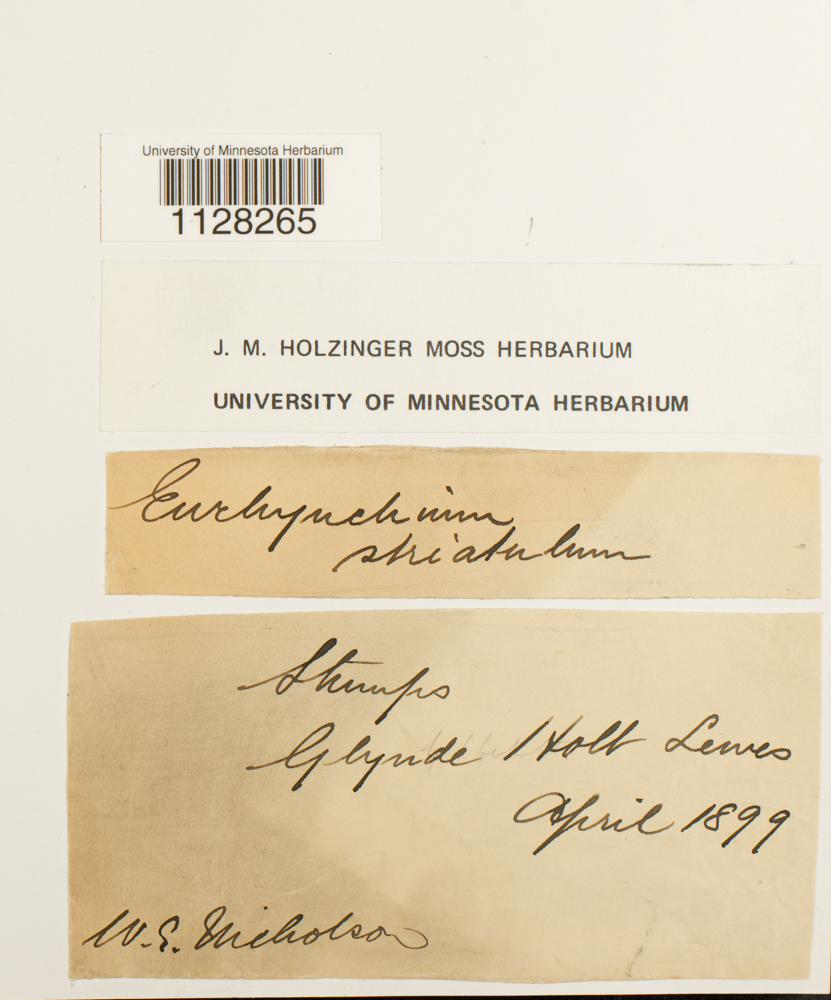 University of Minnesota Herbarium
1128265
J. M. HOLZINGER MOSS HERBARIUM
UNIVERSITY OF MINNESOTA HERBARIUM
Eurhynchium
striatulum
Stumps
Glynde Holt Lewes
April 1899
W. E. Nicholson